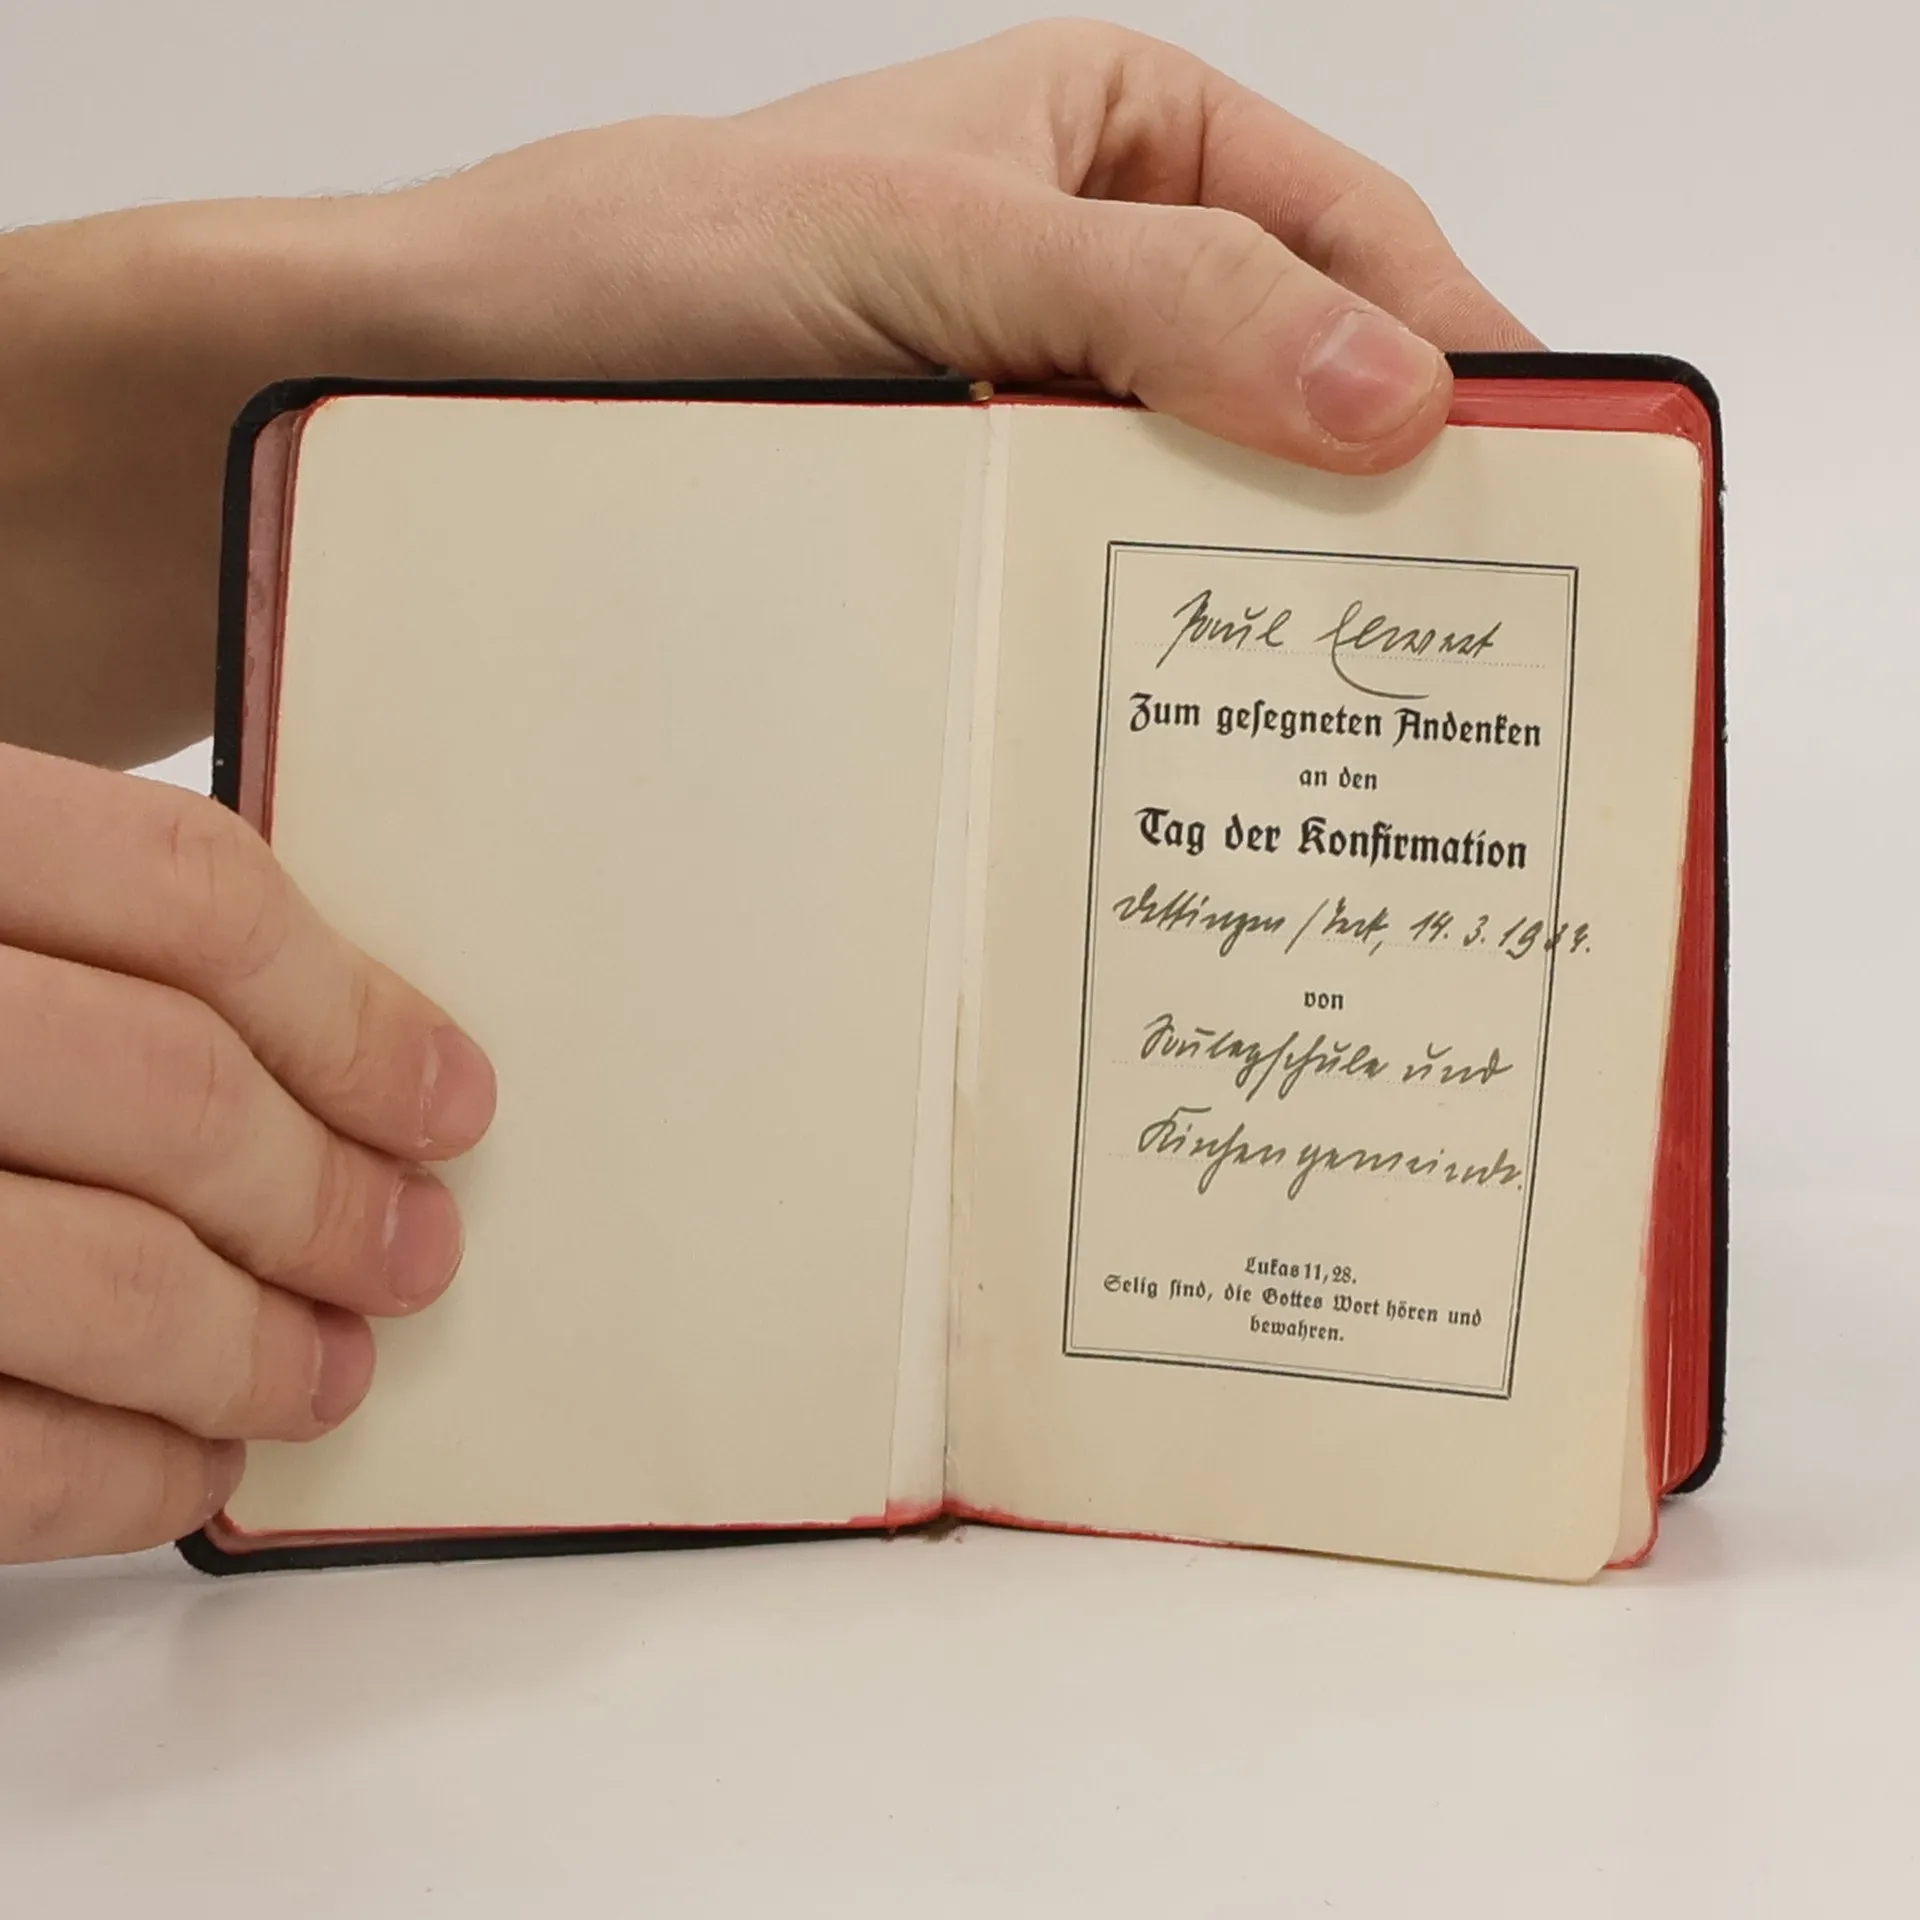 Paul Elwert
Zum gesegneten Andenken
an den
Tag der Konfirmation
Dettingen/Teck, 14. 3.
von
Son̄tagschule und
Kirchengemeinde.
Lukas 11, 28.
Selig sind, die Gottes Wort hören und
bewahren.